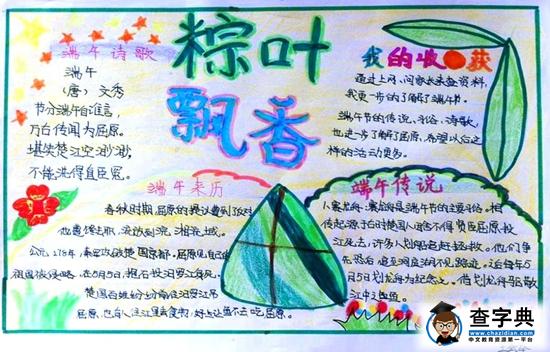 粽叶
飘香
端午诗歌
端午
(唐) 文秀
节分端午自谁言,
万古传闻为屈原。
堪笑楚江空渺渺,
不能洗得直臣冤。
我的收获
通过上网、问家长来查资料,
我更一步的了解了端午节。
端午节的传说、习俗、诗歌,
也进一步了解了屈原,希望以后这
样的活动更多。
端午来历
春秋时期,屈原的提议遭到了反对
他遭馋去职,流放到沅、湘流域。
公元278年,秦军攻破楚国京都。屈原见自己的
祖国被侵略,在5月5日,抱石投汨罗江身死。
楚国百姓纷纷涌住汨罗江吊
屈原,也向江里
鱼不去吃屈原。
端午传说
赛龙舟是端午节的主要习俗。相
传起源于古时楚国人因舍不得贤臣屈原投
江死去,许多人划船追赶拯救。他们争
先恐后,追至洞庭湖不见踪迹。之后每年5
月5日划龙舟为纪念之。借划龙舟驱散
江中之鱼。
查字典
www.chazidian.com
中文教育资源第一平台